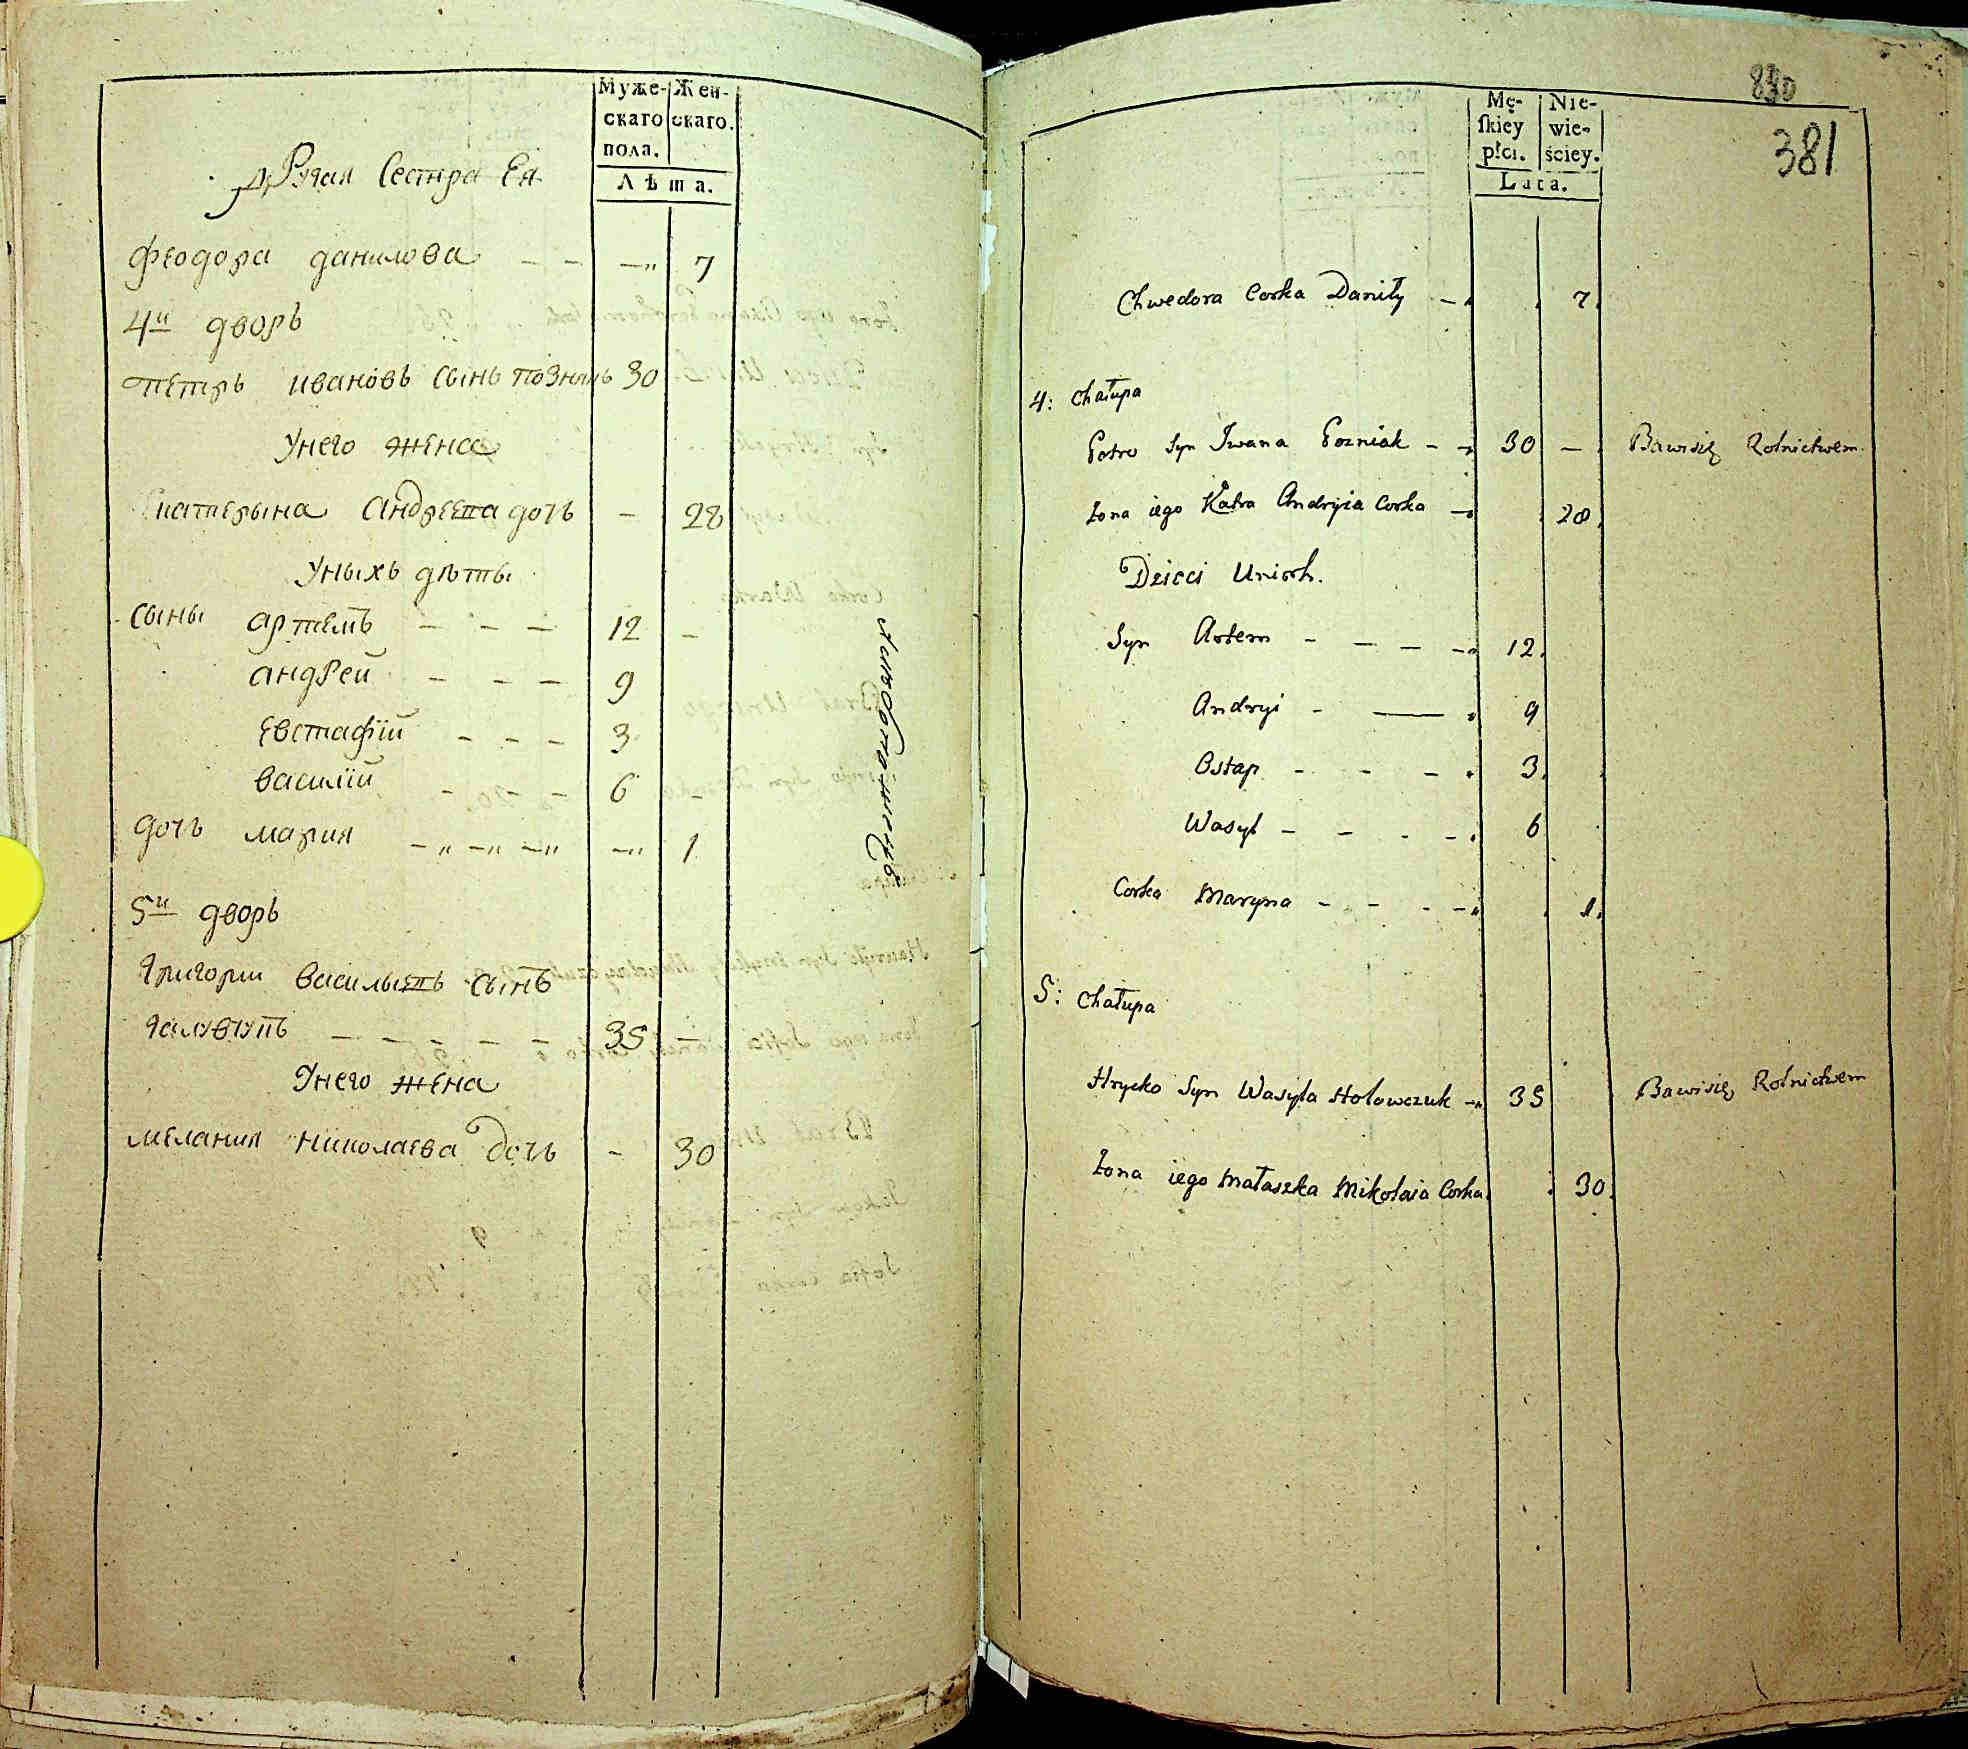 Муже- Жен-
скаго скаго.
пола.
Лѣта.
другая Сестра Ея
феодора данилова — — —„ 7
4й дворъ
петръ ивановъ сынъ познякъ 30
Унего жена
Екатерына Андреева дочь - 28
Уныхъ дѣты
сыны артемъ - - - 12 -
андрей - - - 9
Евстафій - - - 3
василій - - - 6 -
дочь мария -„ -„ -„ -„ 1
5й дворъ
григории васильевъ сынъ
- - - - - 35 -
Унего жена
мелания николаева дочь - 30
830
381
Mę- Nie-
ſkiey wie-
płci. ściey.
Lata.
Chwedora Corka Daniły - 7.
4: Chałupa
Petro Syn Iwana Pozniak - - 30 - Bawisię Rolnictwem.
Żona iego Katra Andryia Corka - 28.
Dzieci Unich.
Syn Artem - - - - 12.
Andryi - — 9
Ostap - - - 3.
Wasyl - - - - 6
Corka Maryna - - - - 1.
5: Chałupa
Hrycko Syn Wasyla Holowczuk - 35 Bawisię Rolnictwem
Żona iego Małaszka Mikołaia Corka. 30.